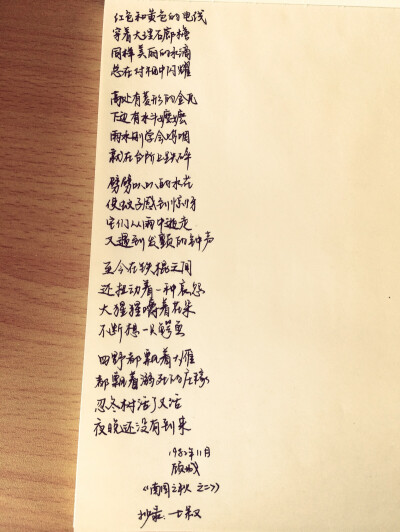 红色和黄色的电线
穿着大理石廊檐
同样美丽的水滴
总在对视中闪耀
高处有菱形的金瓦
下边有水
雨水刚学会呜咽
就在台阶上跌碎
劈劈叭叭的水花
使蚊子感到惊讶
它们从雨中逃走
又遇到发颤的钟声
至今在铁棍之间
还扭动着一种哀怨
大猩猩嚼着花朵
不断想一只鳄鱼
四野都飘着大雁
都飘着溺死的庄稼
忍冬树活了又活
夜晚还没有到来
1982年11月
顾城
《南国之秋 之二》
抄录·七叔